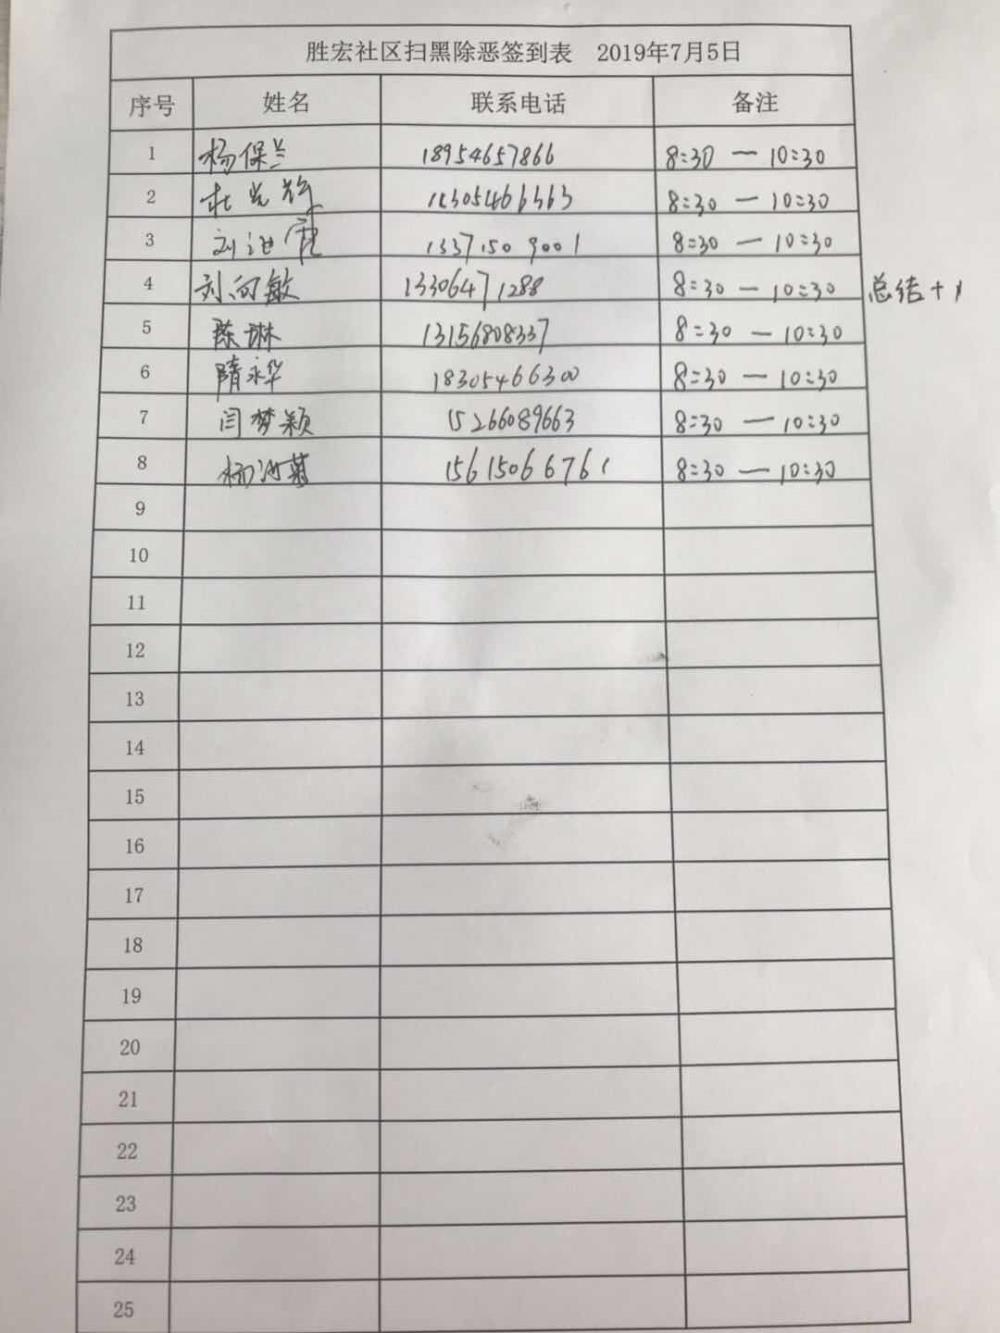 胜宏社区扫黑除恶签到表 2019年7月5日
序号 姓名 联系电话 备注
1 杨保兰 18954657866 8:30 — 10:30
2 杜 8:30 — 10:30
3 刘 13371509001 8:30 — 10:30
4 刘向敏 13306471288 8:30 — 10:30 总结+1
5 陈琳 13156808337 8:30 — 10:30
6 隋永华 18305466300 8:30 — 10:30
7 闫梦颖 15266089663 8:30 — 10:30
8 杨 15615066761 8:30 — 10:30
9
10
11
12
13
14
15
16
17
18
19
20
21
22
23
24
25